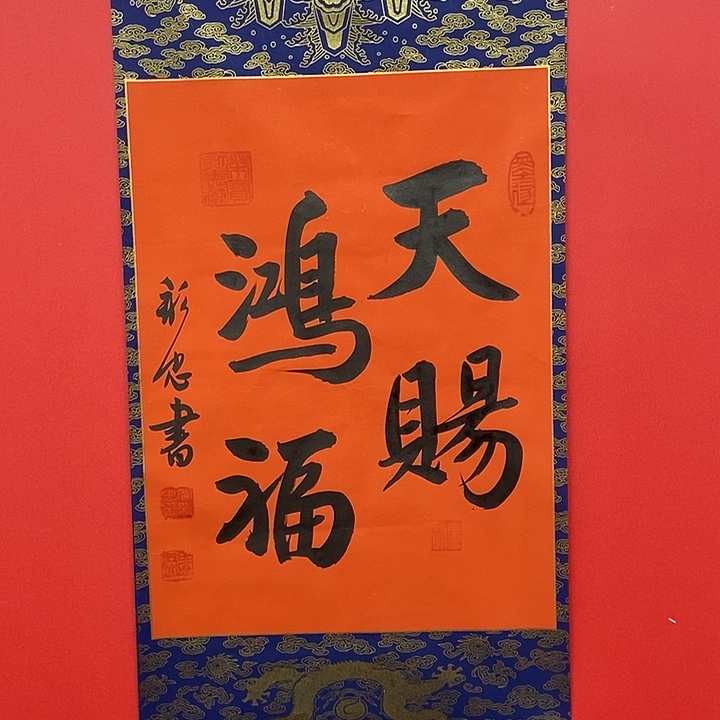 天賜
鴻福
彩忠書